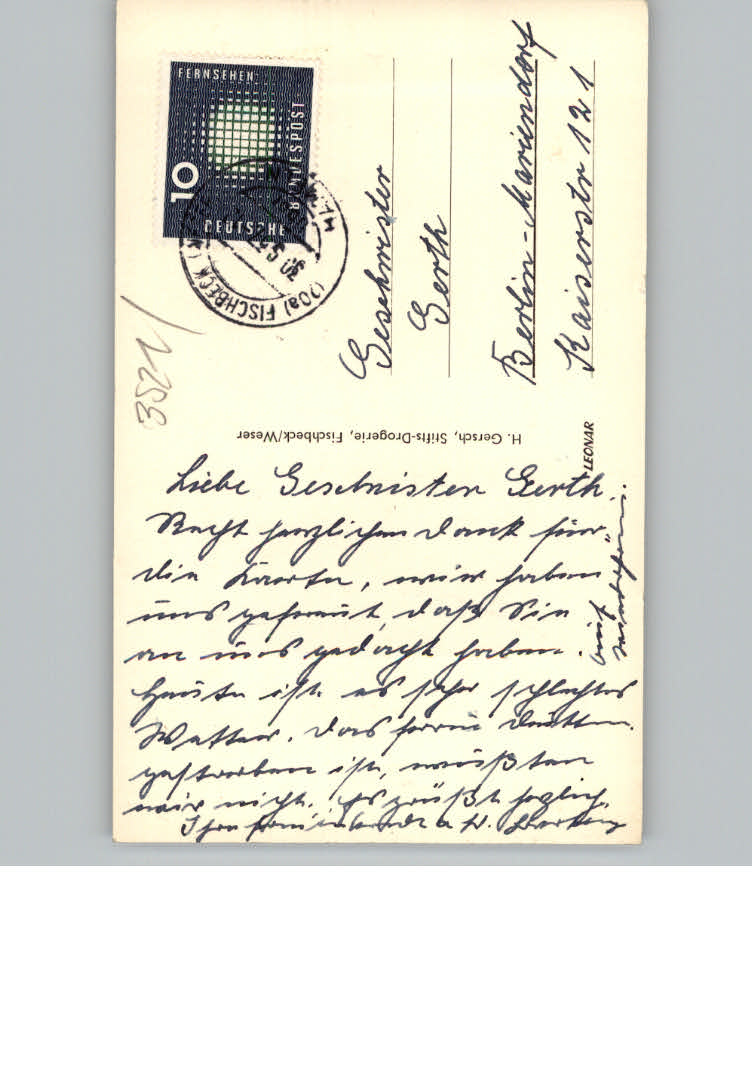 FERNSEHEN
10
DEUTSCHE
BUNDESPOST
(20a) FISCHBECK
3521
Geschwister
Gerth
Berlin-Mariendorf
Kaiserstr 121
H. Gersch, Stifts-Drogerie, Fischbeck/Weser
LEONAR
Liebe Geschwister Gerth.
Recht herzlichen Dank für
die Karte, wir haben
uns gefreut, daß Sie
an uns gedacht haben.
Heute ist es sehr schlechtes
Wetter. Das Frau
gestorben ist, wußten
wir nicht. Es grüßt herzlich
Ihre
Auf